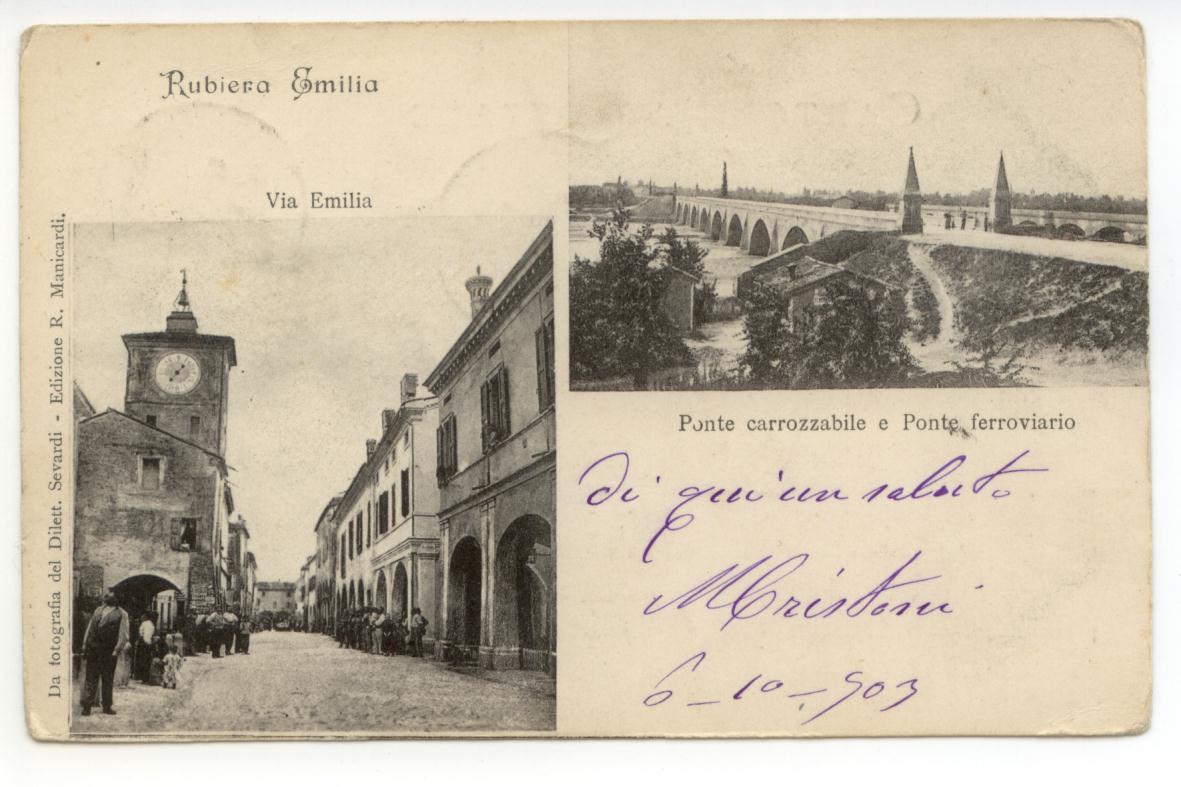 Rubiera Emilia
Via Emilia
Da fotografia del Dilett. Sevardi - Edizione R. Manicardi.
Ponte carrozzabile e Ponte ferroviario
Di qui un saluto
6-10-903